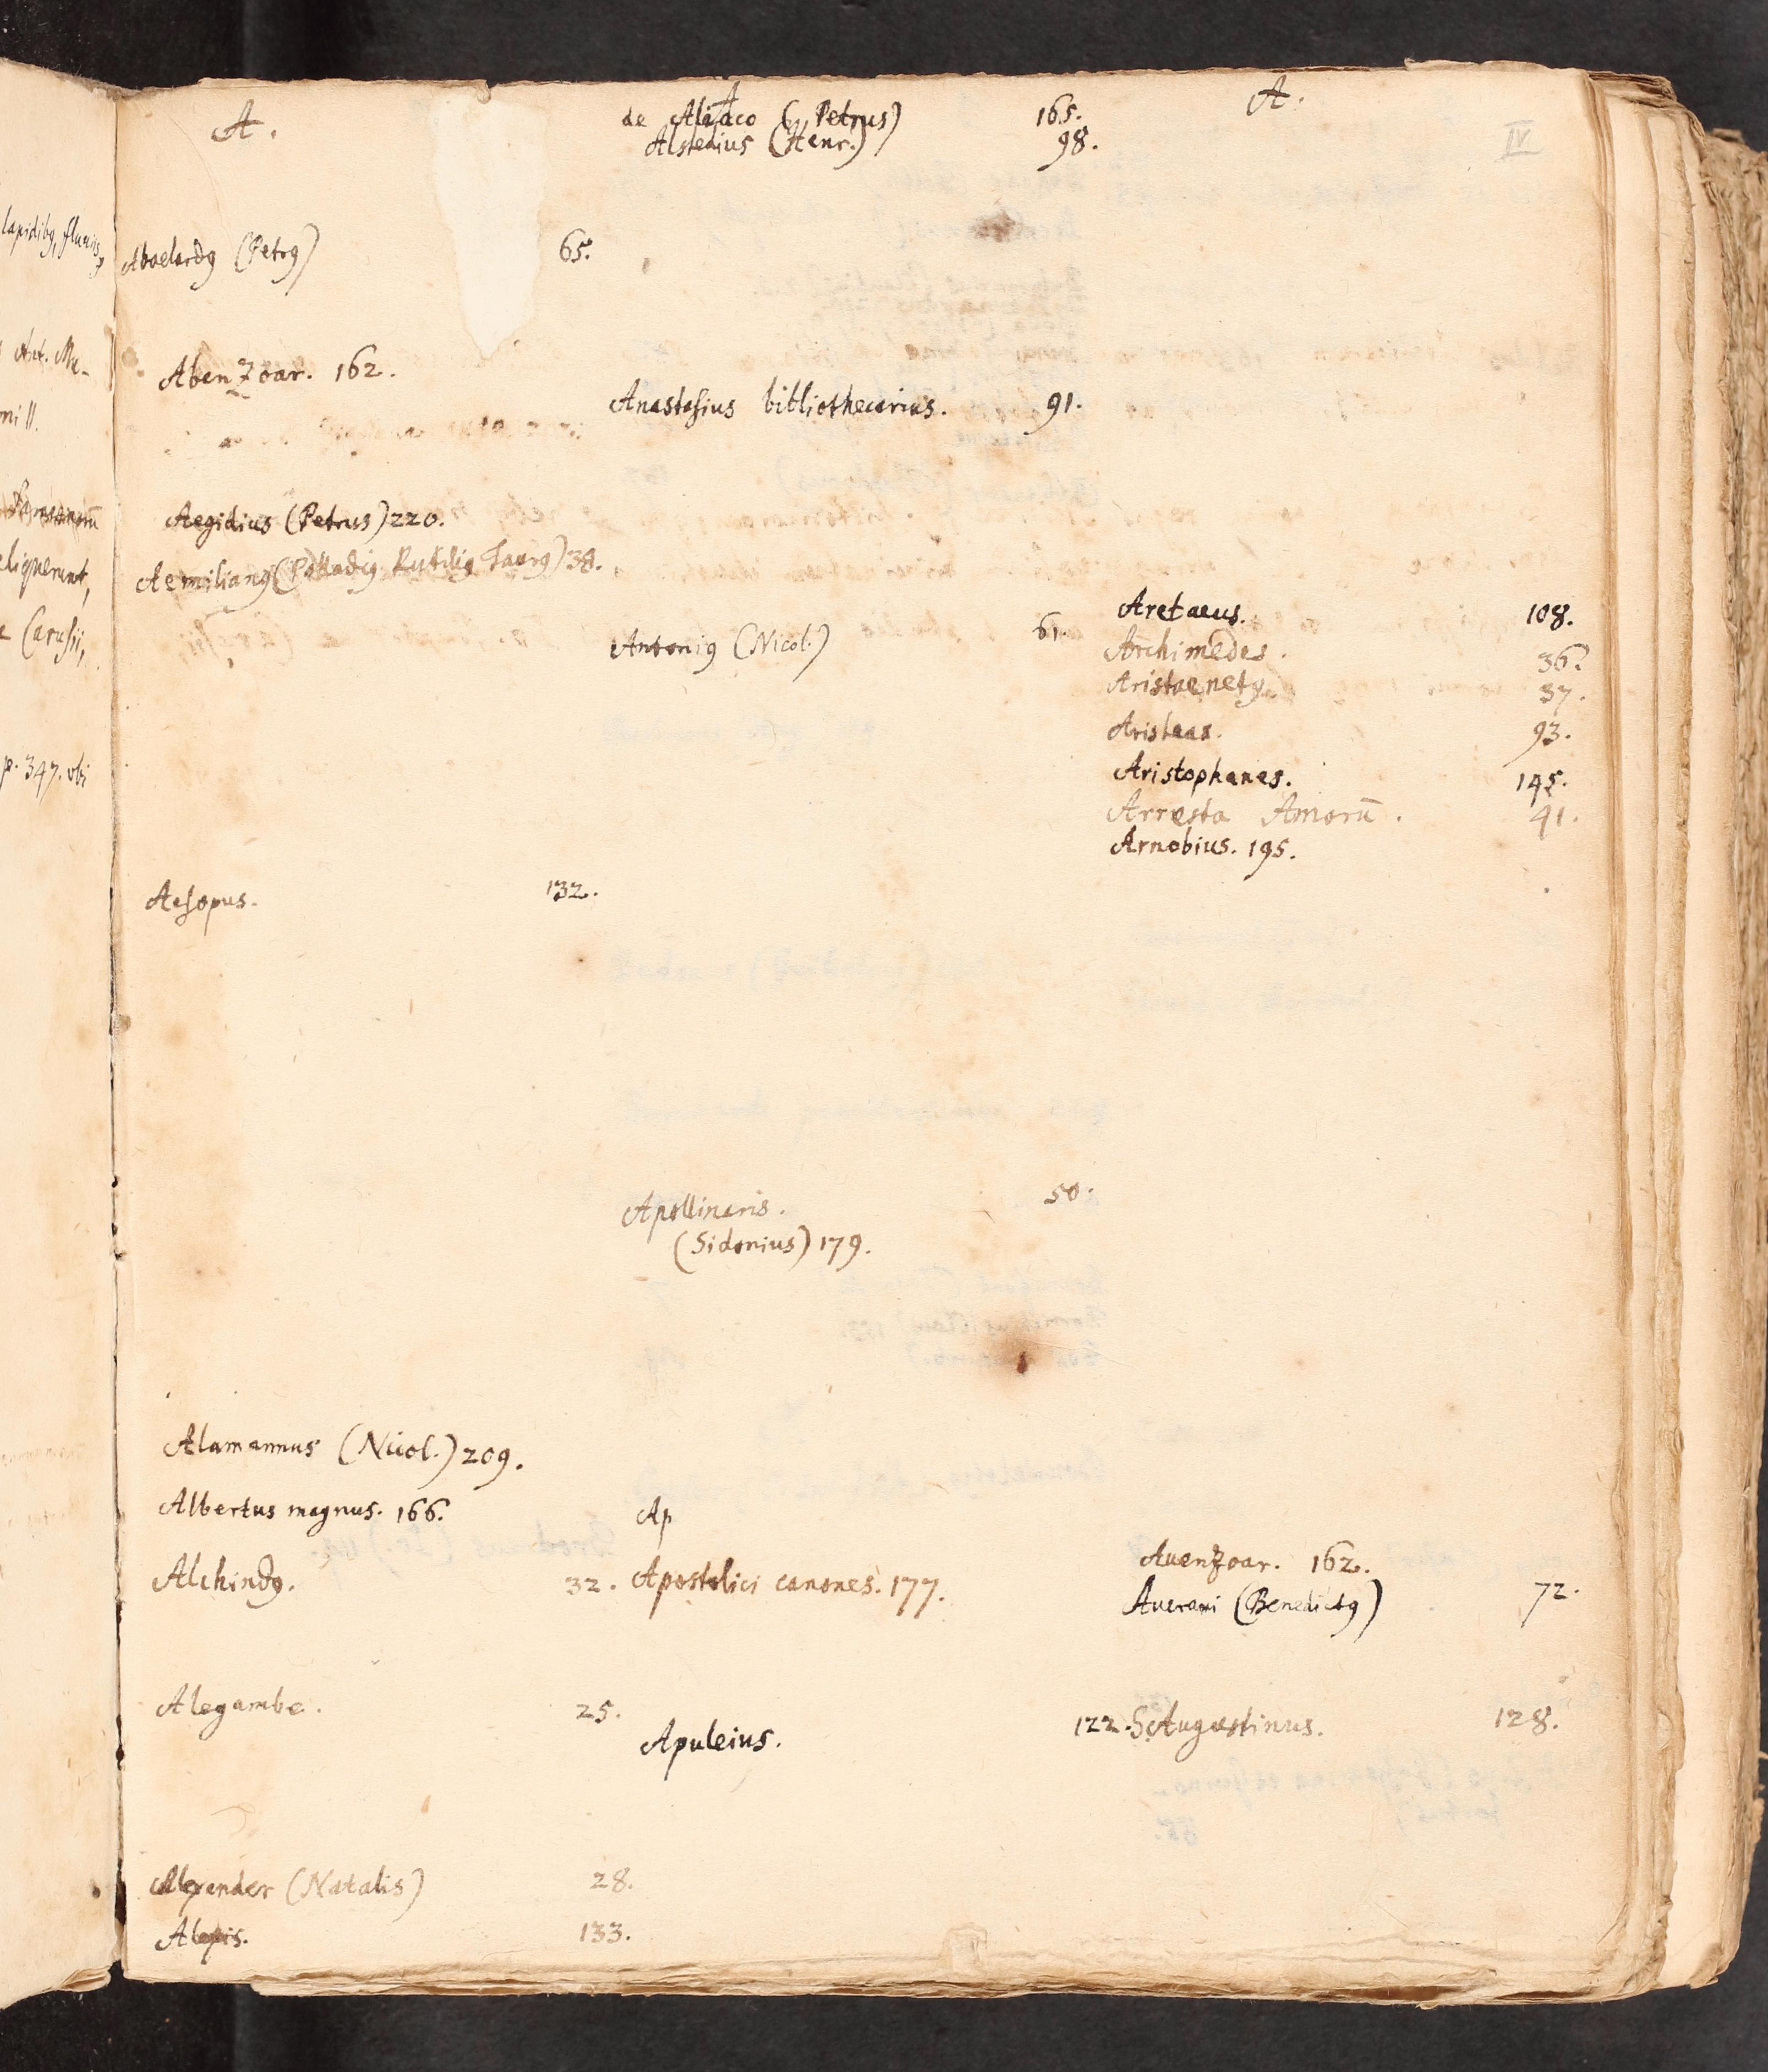 lapidibꝰ, fluuiis,
Ant. Mu-
ni II.
eliquerunt,
e Carusii,
p. 347. vbi
A.
Abaelardꝰ (Petrꝰ) 65.
Abenzoar. 162.
Aegidius (Petrus) 220.
Aemilianꝰ (Palladiꝰ Rutiliꝰ Taurꝰ) 38.
Aesopus. 132.
Alamannus (Nicol.) 209.
Albertus magnus. 166.
Alchindꝰ. 32.
Alegambe. 25.
Alexander (Natalis) 28.
Alexis. 133.
A
de Aliaco (Petrus) 165.
Alstedius (Henr.) 98.
Anastasius bibliothecarius. 91.
Antoniꝰ (Nicol.) 61.
Apollinaris. 50.
(Sidonius) 179.
Ap
Apostolici canones. 177.
Apuleius. 122.
A.
IV
Aretaeus. 108.
Archimedes. 36.
Aristaenetꝰ. 37.
Aristeas. 93.
Aristophanes. 145.
Arresta Amorū. 41.
Arnobius. 195.
Auenzoar. 162.
Auerani (Benedictꝰ) 72.
S. Augustinus. 128.